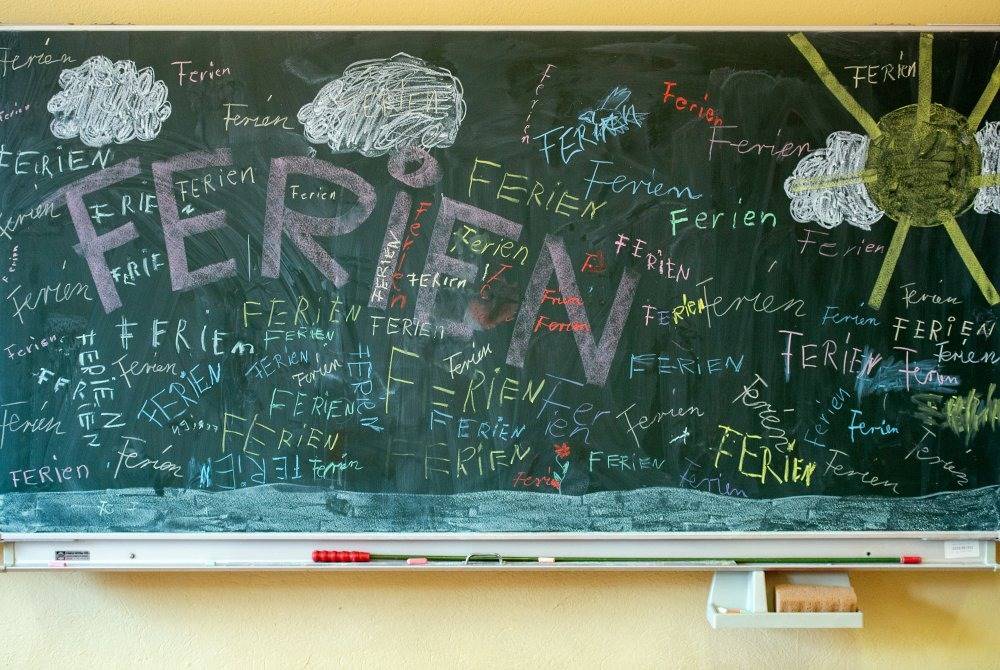 Ferien
Ferien
FERiEN
Ferien
Ferien
Ferien
Ferien
FERIEN
Ferien
FERiEN
Ferien
FERiEN
FERiEN
FERiEN
Ferien
FERiEN
Ferien
Ferien
Ferien
Ferien
Ferien
FERiEN
Ferien
FERiEN
FERiEN
Ferien
Ferien
Ferien
Ferien
FERiEN
Ferien
Ferien
FERiEN
FERiEN
FERiEN
FERiEN
Ferien
FERiEN
Ferien
Ferien
FERiEN
Ferien
FERIEN
FERiEN
FERiEN
FERiEN
FERIEN
FERiEN
Ferien
FERiEN
FERiEN
Ferien
Ferien
Ferien
Ferien
Ferien
FERiEN
FERiEN
FERiEN
FERiEN
Ferien
Ferien
FERiEN
Ferien
Ferien
FERiEN
Ferien
Ferien